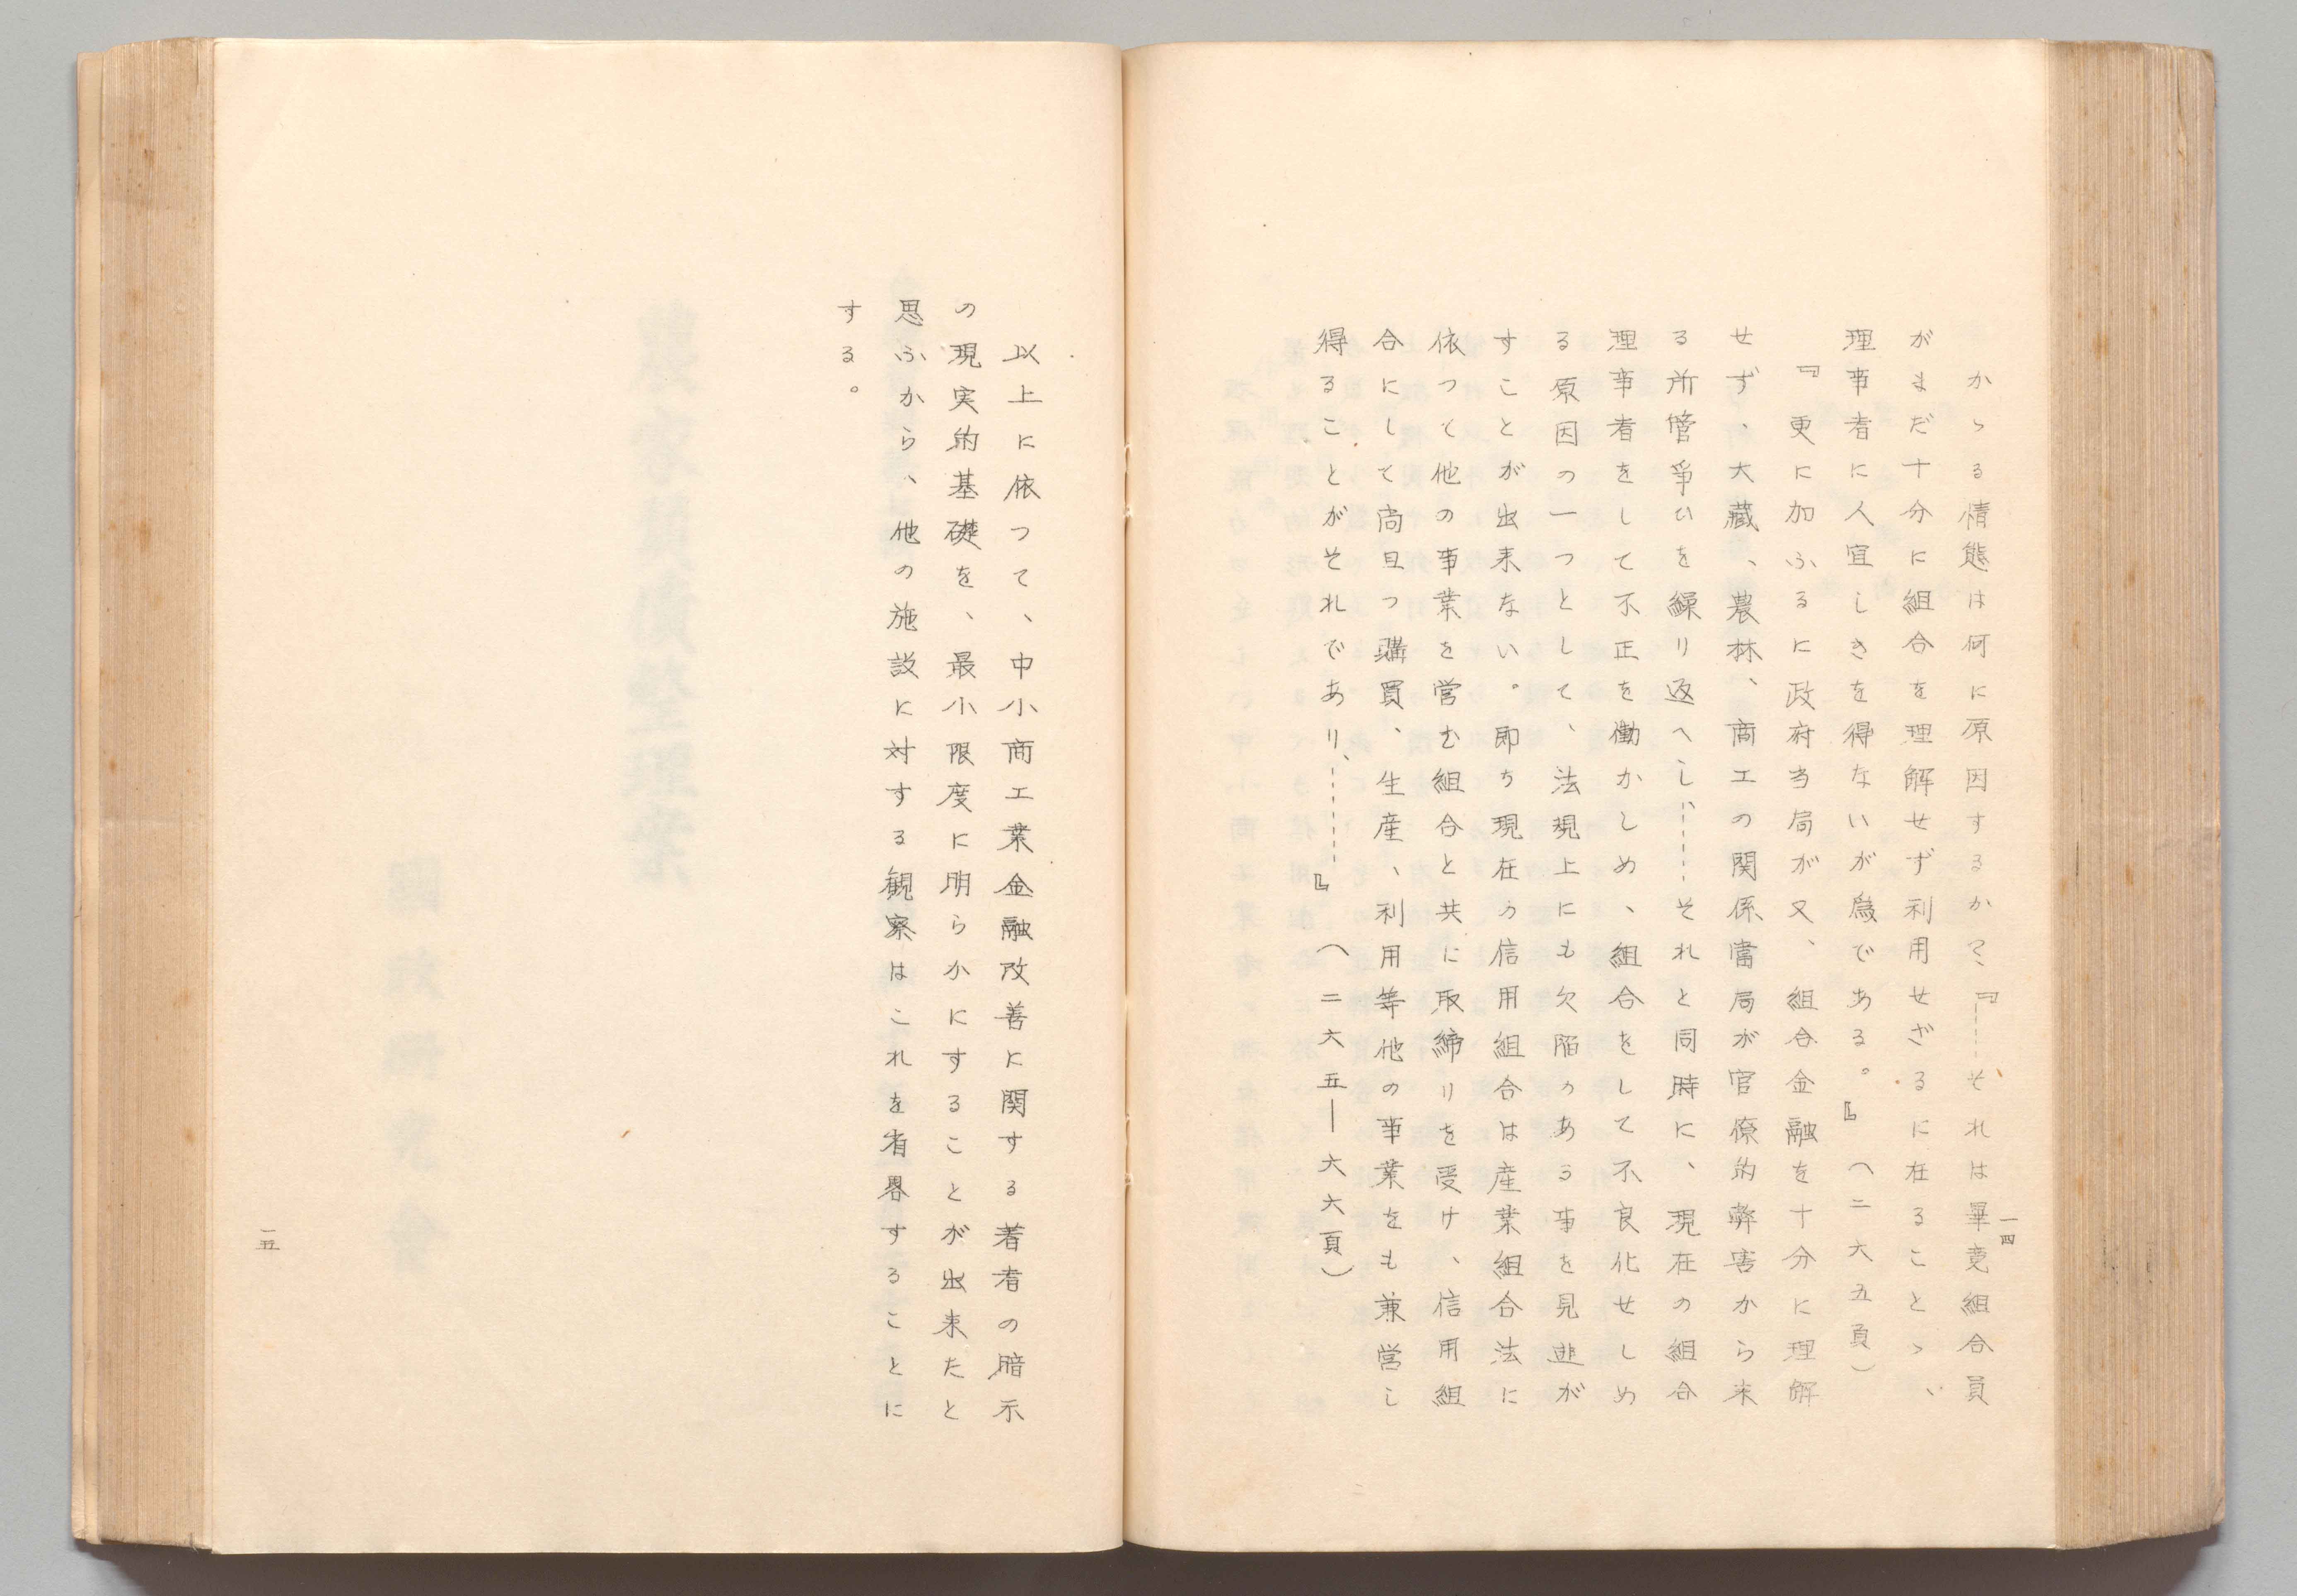 一四
かゝる情態は何に原因するか？『……それは畢竟組合員
がまだ十分に組合を理解せず利用せざるに在ることゝ、
理事者に人宜しきを得ないが為である。』（二六五頁）
『更に加ふるに政府当局が又、組合金融を十分に理解
せず、大蔵、農林、商工の関係當局が官僚的弊害から来
る所管爭ひを繰り返へし、……それと同時に、現在の組合
理事者をして不正を働かしめ、組合をして不良化せしめ
る原因の一つとして、法現上にも欠陥のある事を見逃が
すことが出来ない。即ち現在の信用組合は産業組合法に
依つて他の事業を営む組合と共に取締りを受け、信用組
合にして尚且つ購買、生産、利用等他の事業をも兼営し
得ることがそれであり、……』（二六五―六六頁）
以上に依つて、中小商工業金融改善に関する著者の暗示
の現実的基礎を、最小限度に明らかにすることが出来たと
思ふから、他の施設に対する観察はこれを省畧することに
する。
一五